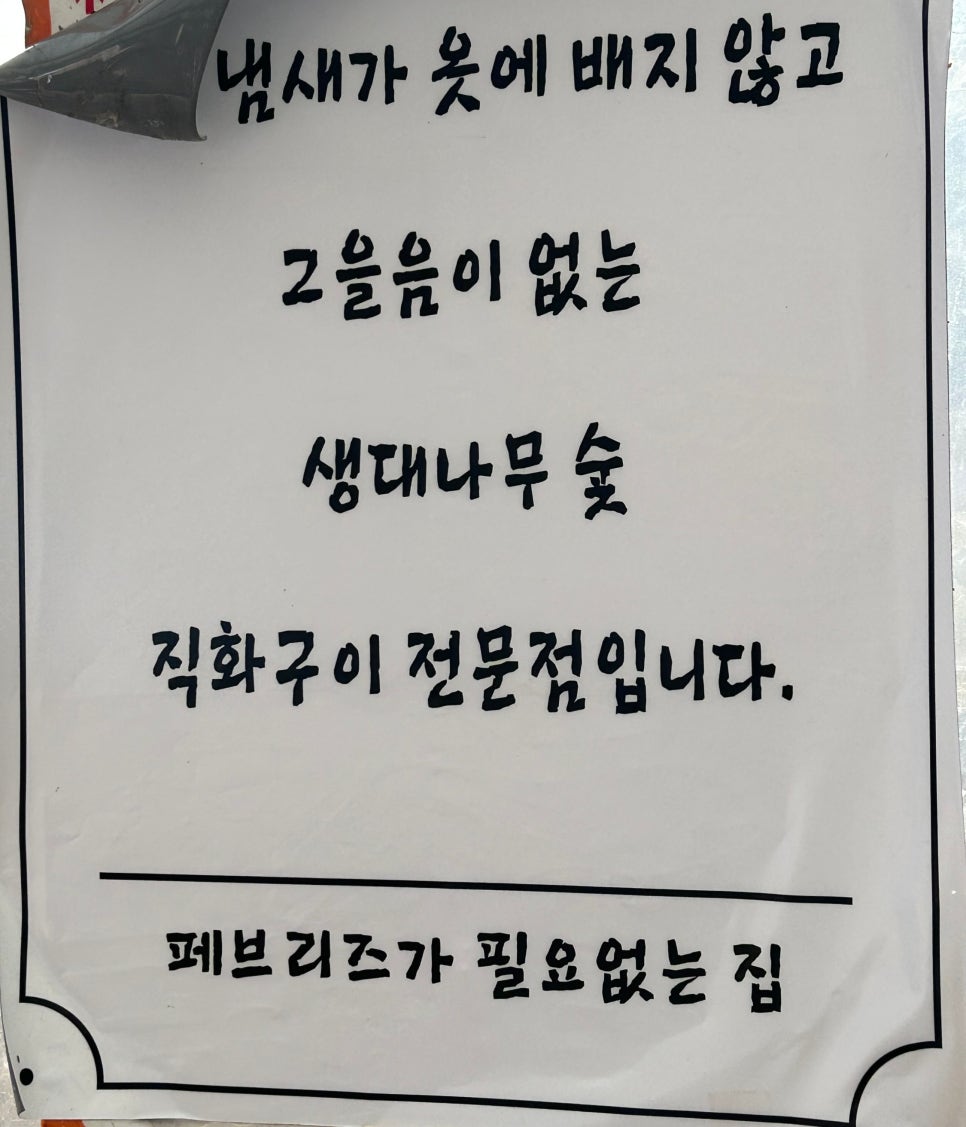 냄새가 옷에 배지 않고
그을음이 없는
생대나무 숯
직화구이 전문점입니다.
페브리즈가 필요없는 집